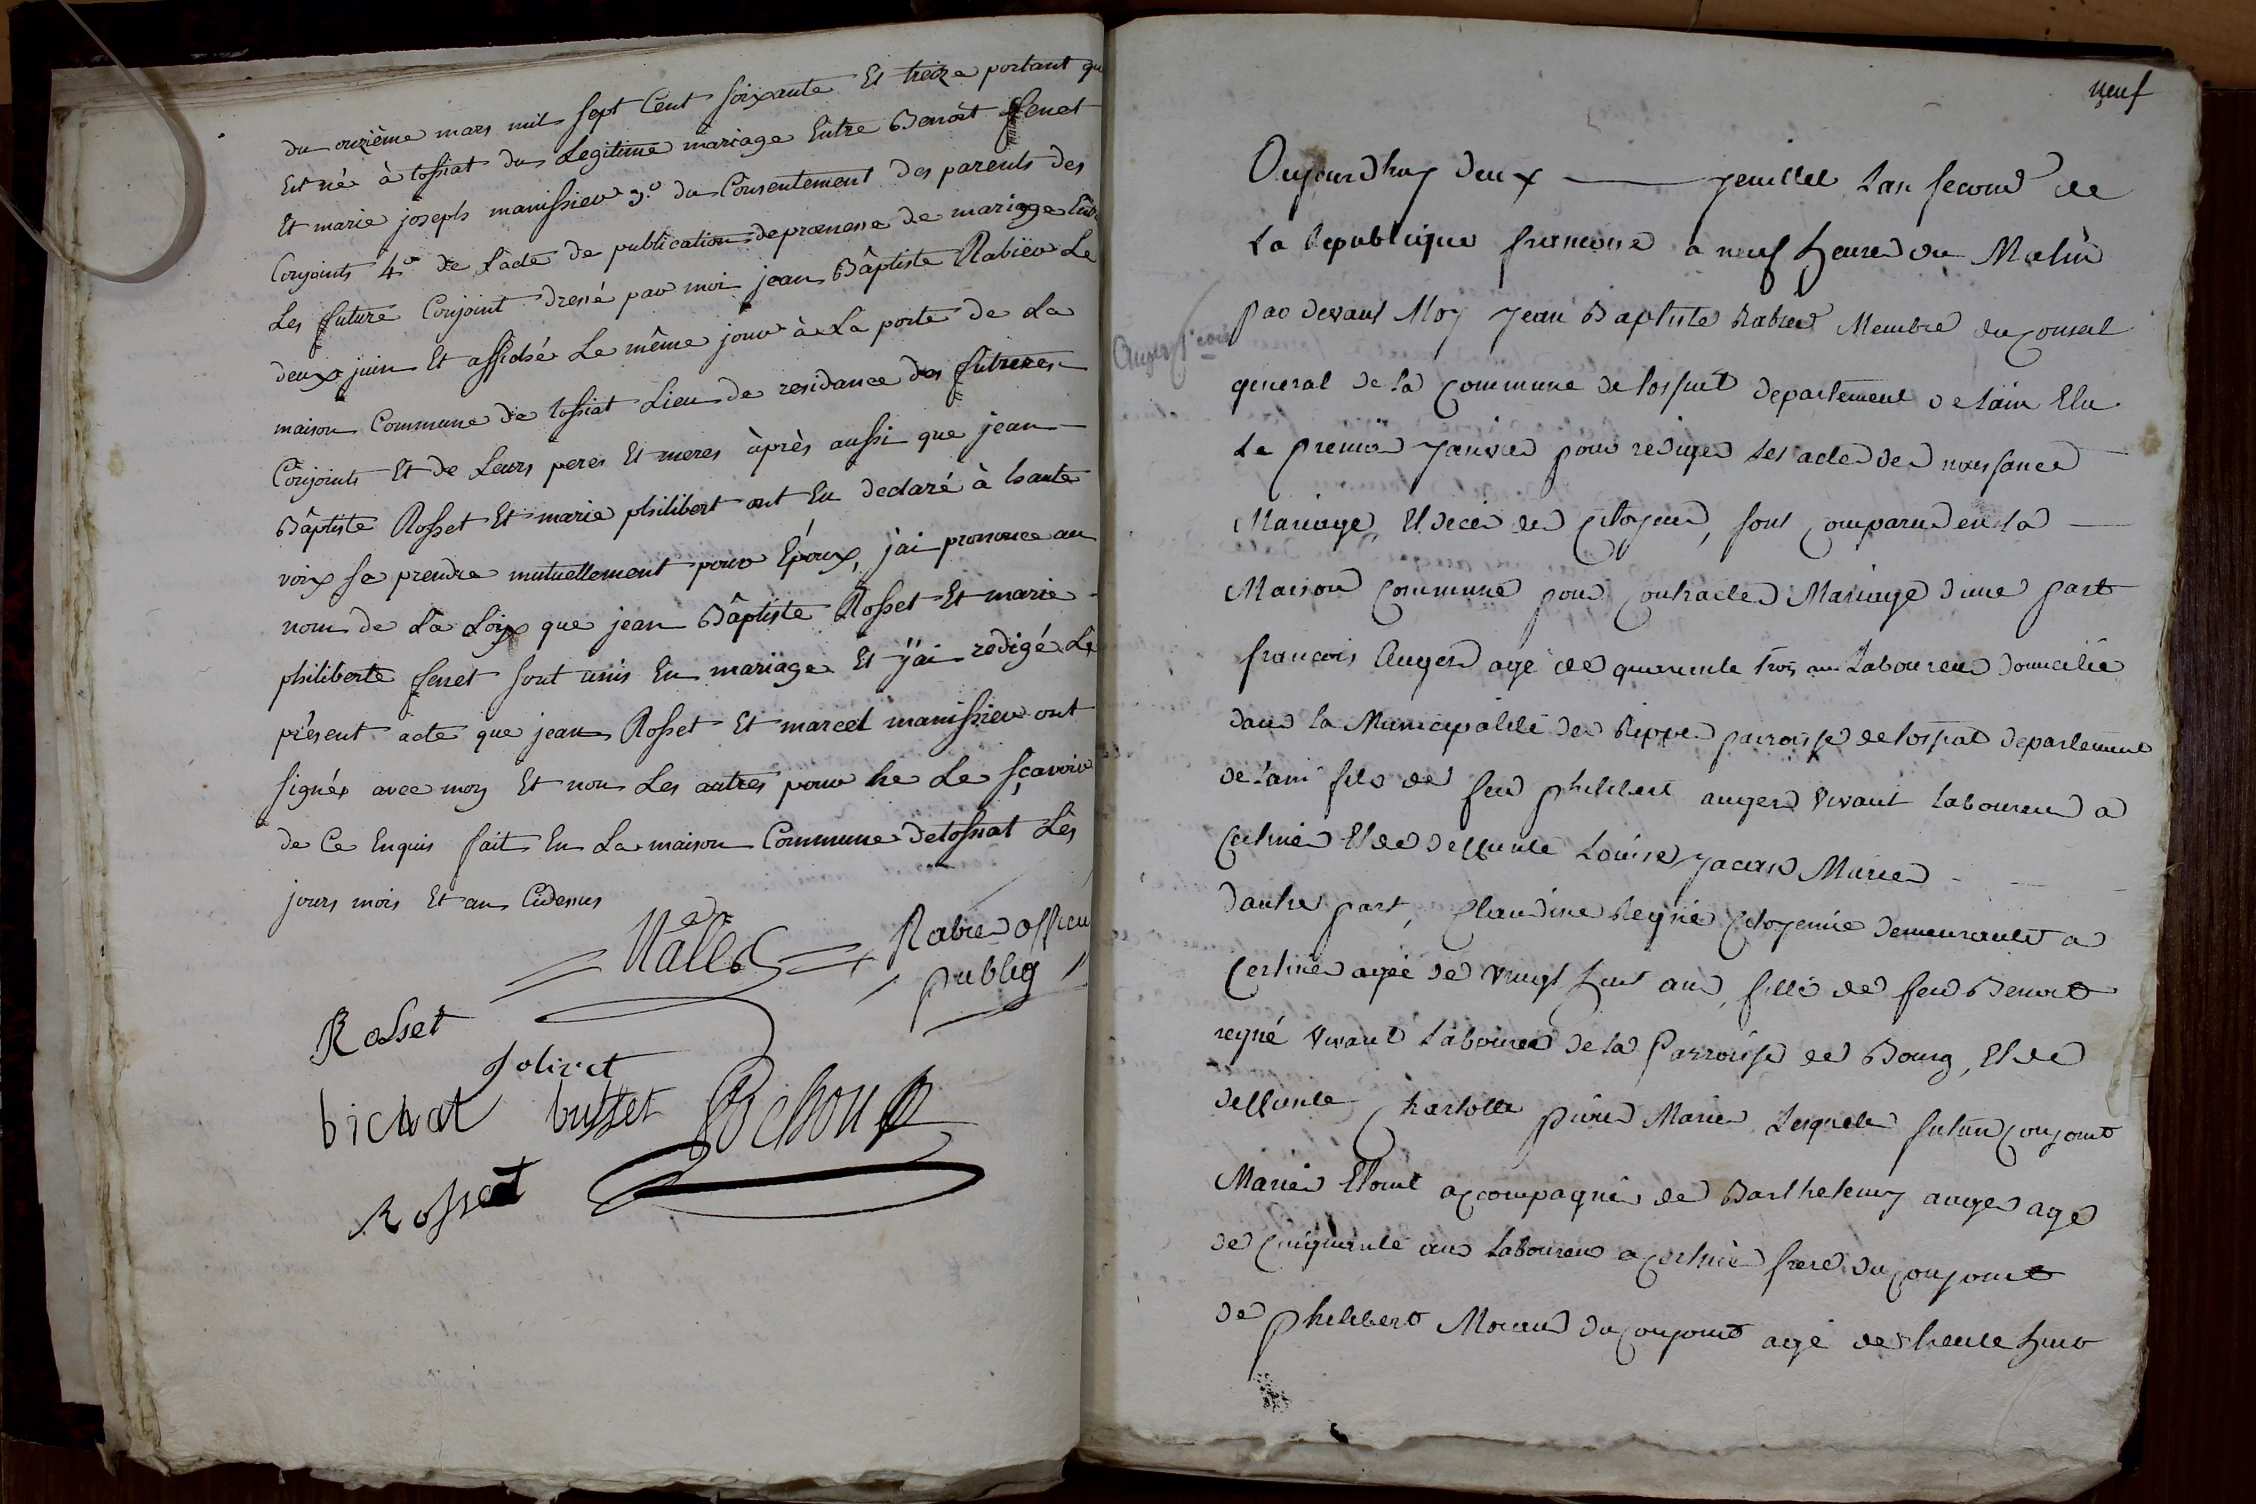 du onzième mars mil sept Cent soixante Et treize portant qu
Est né à tossiat du Legitime mariage Entre Benoit ferret
Et marie joseph manissieu 3.o du Consentement des parents des
Conjoints 4o de L'acte de publication de promesse de mariage Entre
Les future Conjoint dressé par moi jean Bâptiste Rabiëu Le
deux juin Et affiché Le même jour à La porte de La
maison Commune de tossiat Lieu de residance des futures
Conjoints Et de Leurs peres Et meres àprès aussi que jean
Bâptiste Rosset Et marie philibert ont Eu declaré à haute
voix se prendre mutuellement pour Époux, j'ai prononce au
nom de La Loix que jean Bâptiste Rosset Et marie
philiberte ferret sont unis En mariage Et j'ai redigé Le
présent acte que jean Rosset Et marcel manissieu ont
signés avec moy Et non Les autres pour ne Le sçavoir
de Ce Enquis fait En La maison Commune de tossiat Les
jours mois Et an Cidessus
Rabie officie
publig
Rosset
Jolivet
bichat buttet Pochoup
Rosset
neuf
Aujourdhuy deux juillet L'an second de
La Republique francoise a neuf heures du Matin
par devant Moy Jean Baptiste Rabieu Membre du Conseil
general de la Commune de tossiat departement de lain Elu
Le premier Janvier pour rediger Les actes des naissance
Mariage, Et deces des Citoyens, sont Comparus en la
Maison Commune pour Contracter Mariage d'une part
francois Auger agé de quarente trois ans Laboureur domicilié
dans la Municipalité des Rippes parroisse de tossiat departement
de lain fils de feu philibert auger vivant laboureur a
Certines Et de deffunte Louise Mariés
Dautre part, Claudine Reyné Citoyenne demeurante a
Certines agée de vingt huit ans, fille de feu Benoit
reyné vivant Laboureur de la Parroisse de Bourg, Et de
deffunte Charlotte Mariés Lesquels futurs Conjoint
Mariés Etoint accompagnés de Barthelemy auger agé
de Cinquente ans Laboureur a Certines frere du Conjoint
de philibert du Conjoint agé de trente huit